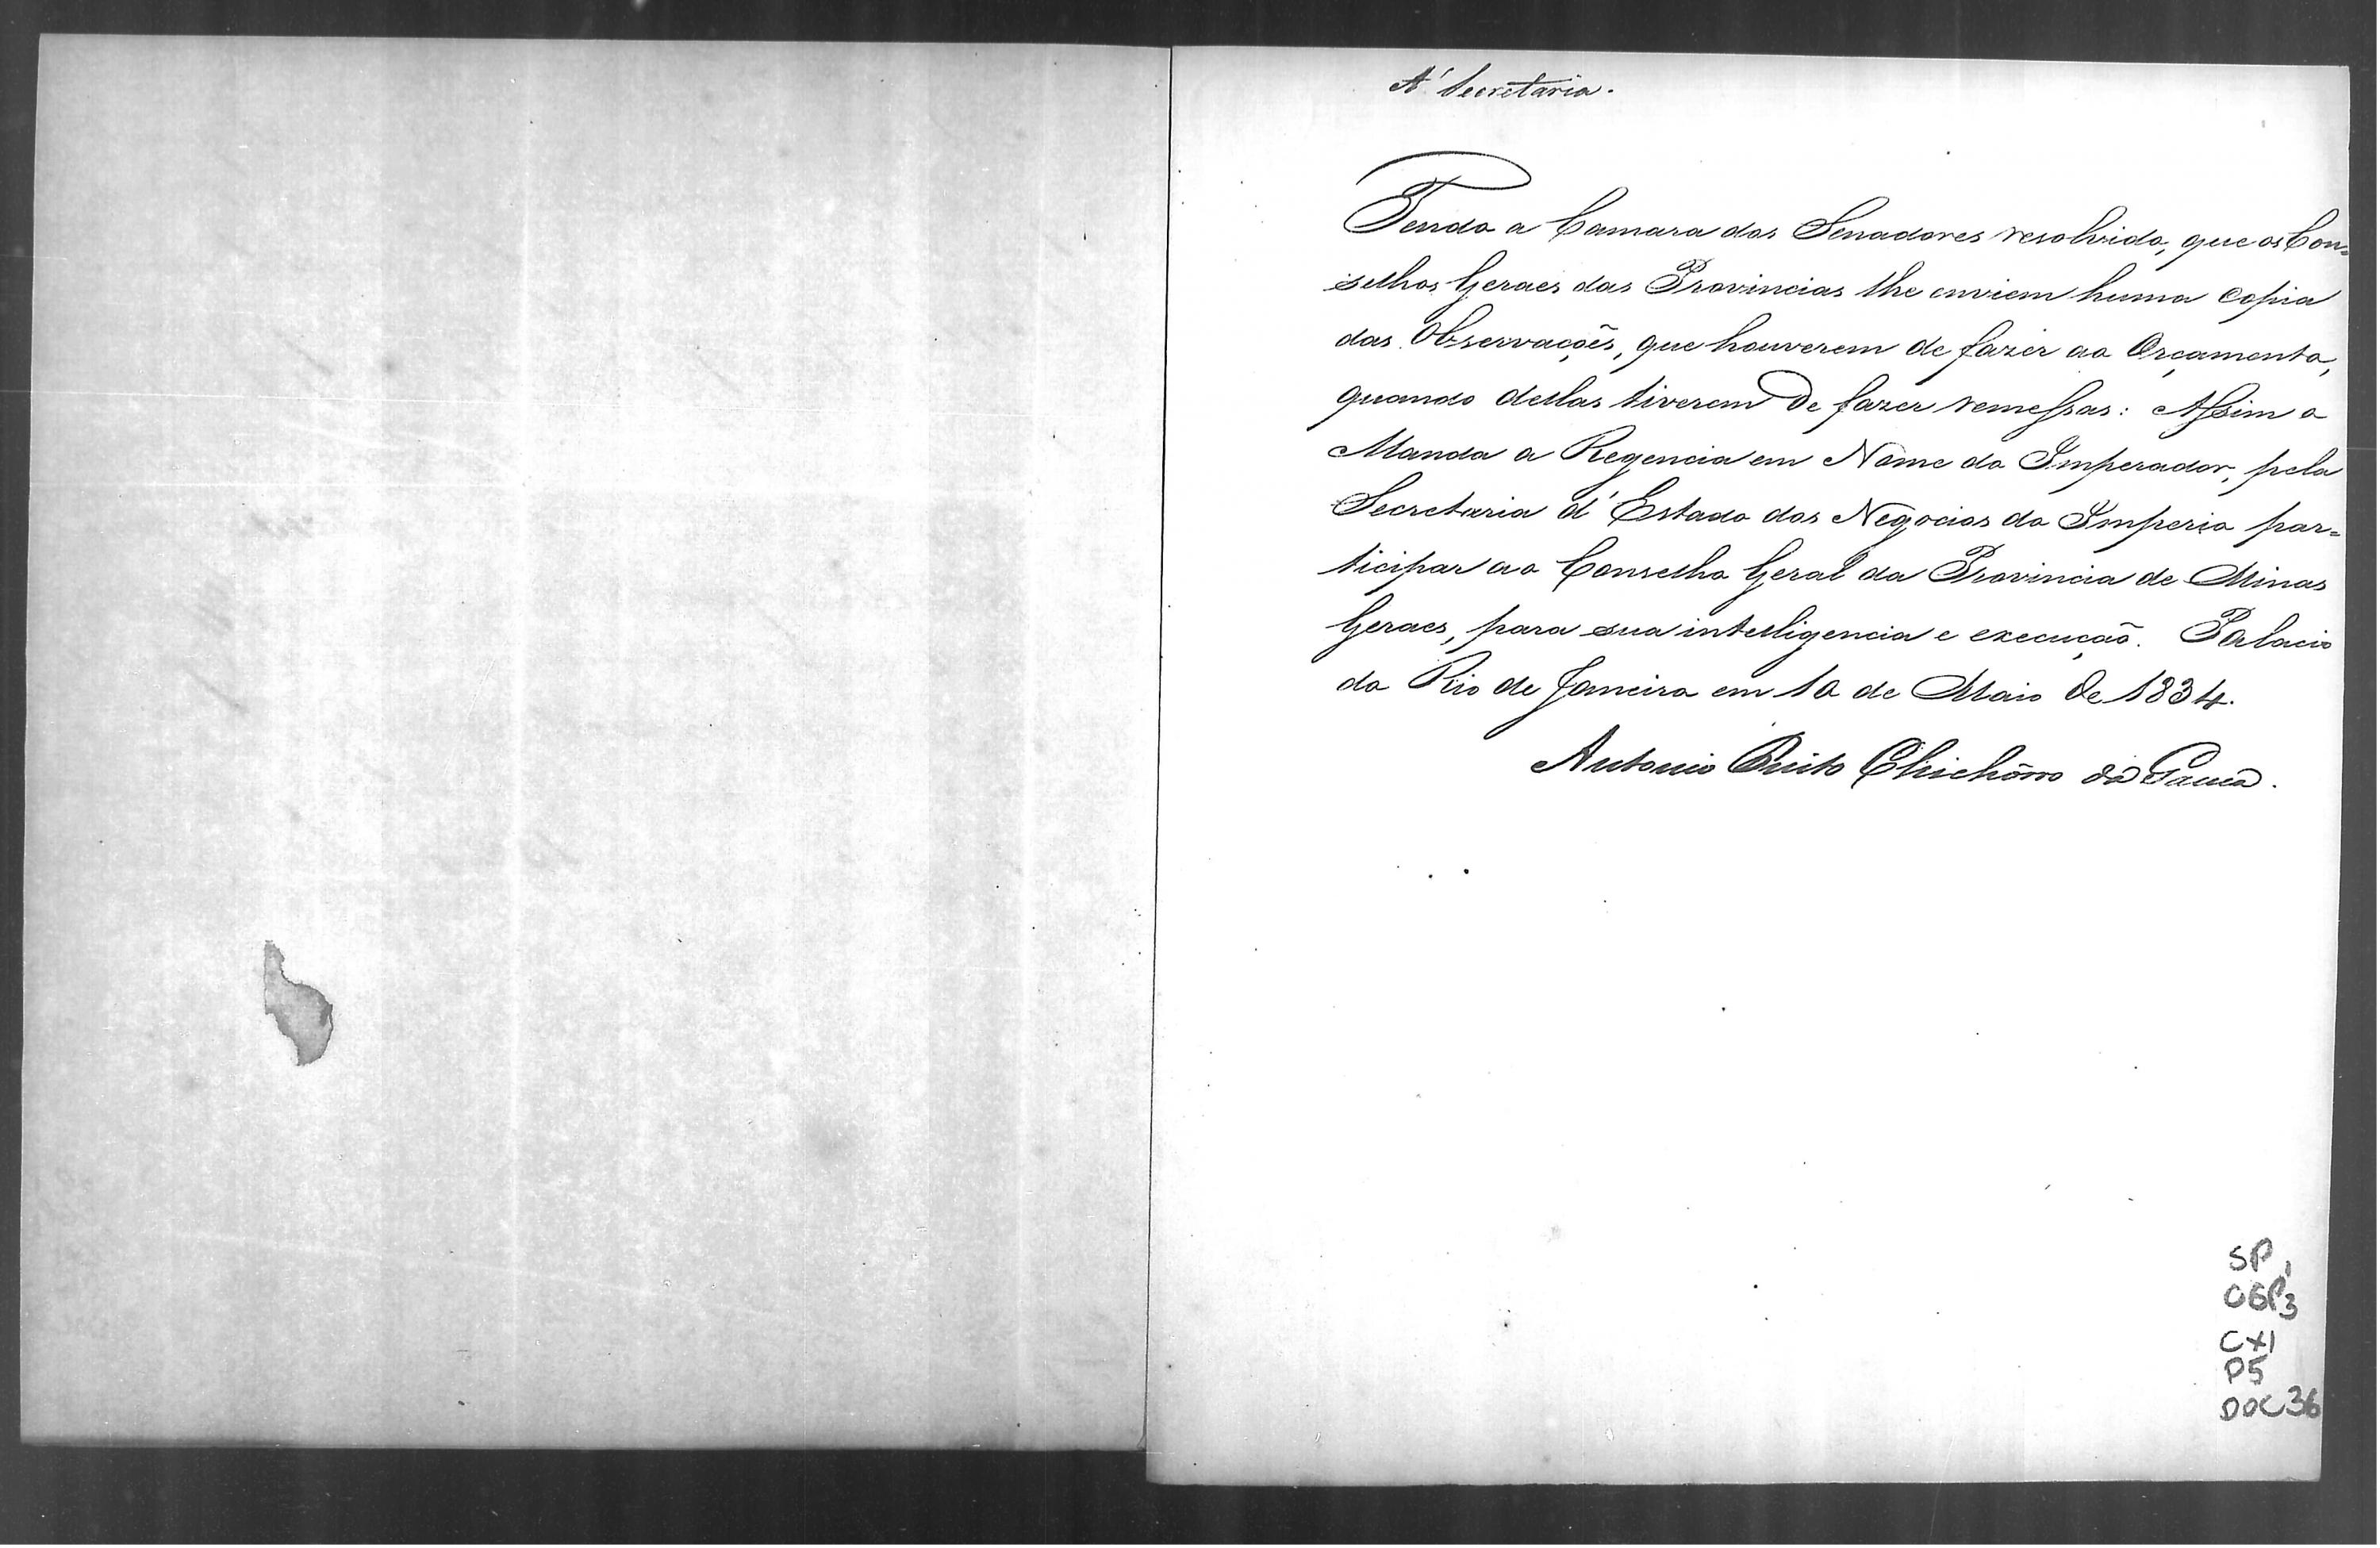 A' Secretaria.
Tendo a Camara dos Senadores resolvido, que os Con=
selhos Geraes das Provincias lhe enviem huma copia
das Observações, que houverem de fazer ao Orçamento,
quando dellas tiverem de fazer remessas: Assim o
Manda a Regencia em Nome do Imperador, pela
Secretaria d'Estado dos Negocios do Imperio par=
ticipar ao Conselho Geral da Provincia de Minas
Geraes, para sua intelligencia e execução. Palacio
do Rio de Janeiro em 10 de Maio de 1834.
Antonio Pinto Chichôrro da Gama.
SP 1
CGP3
CX1
P5
DOC36